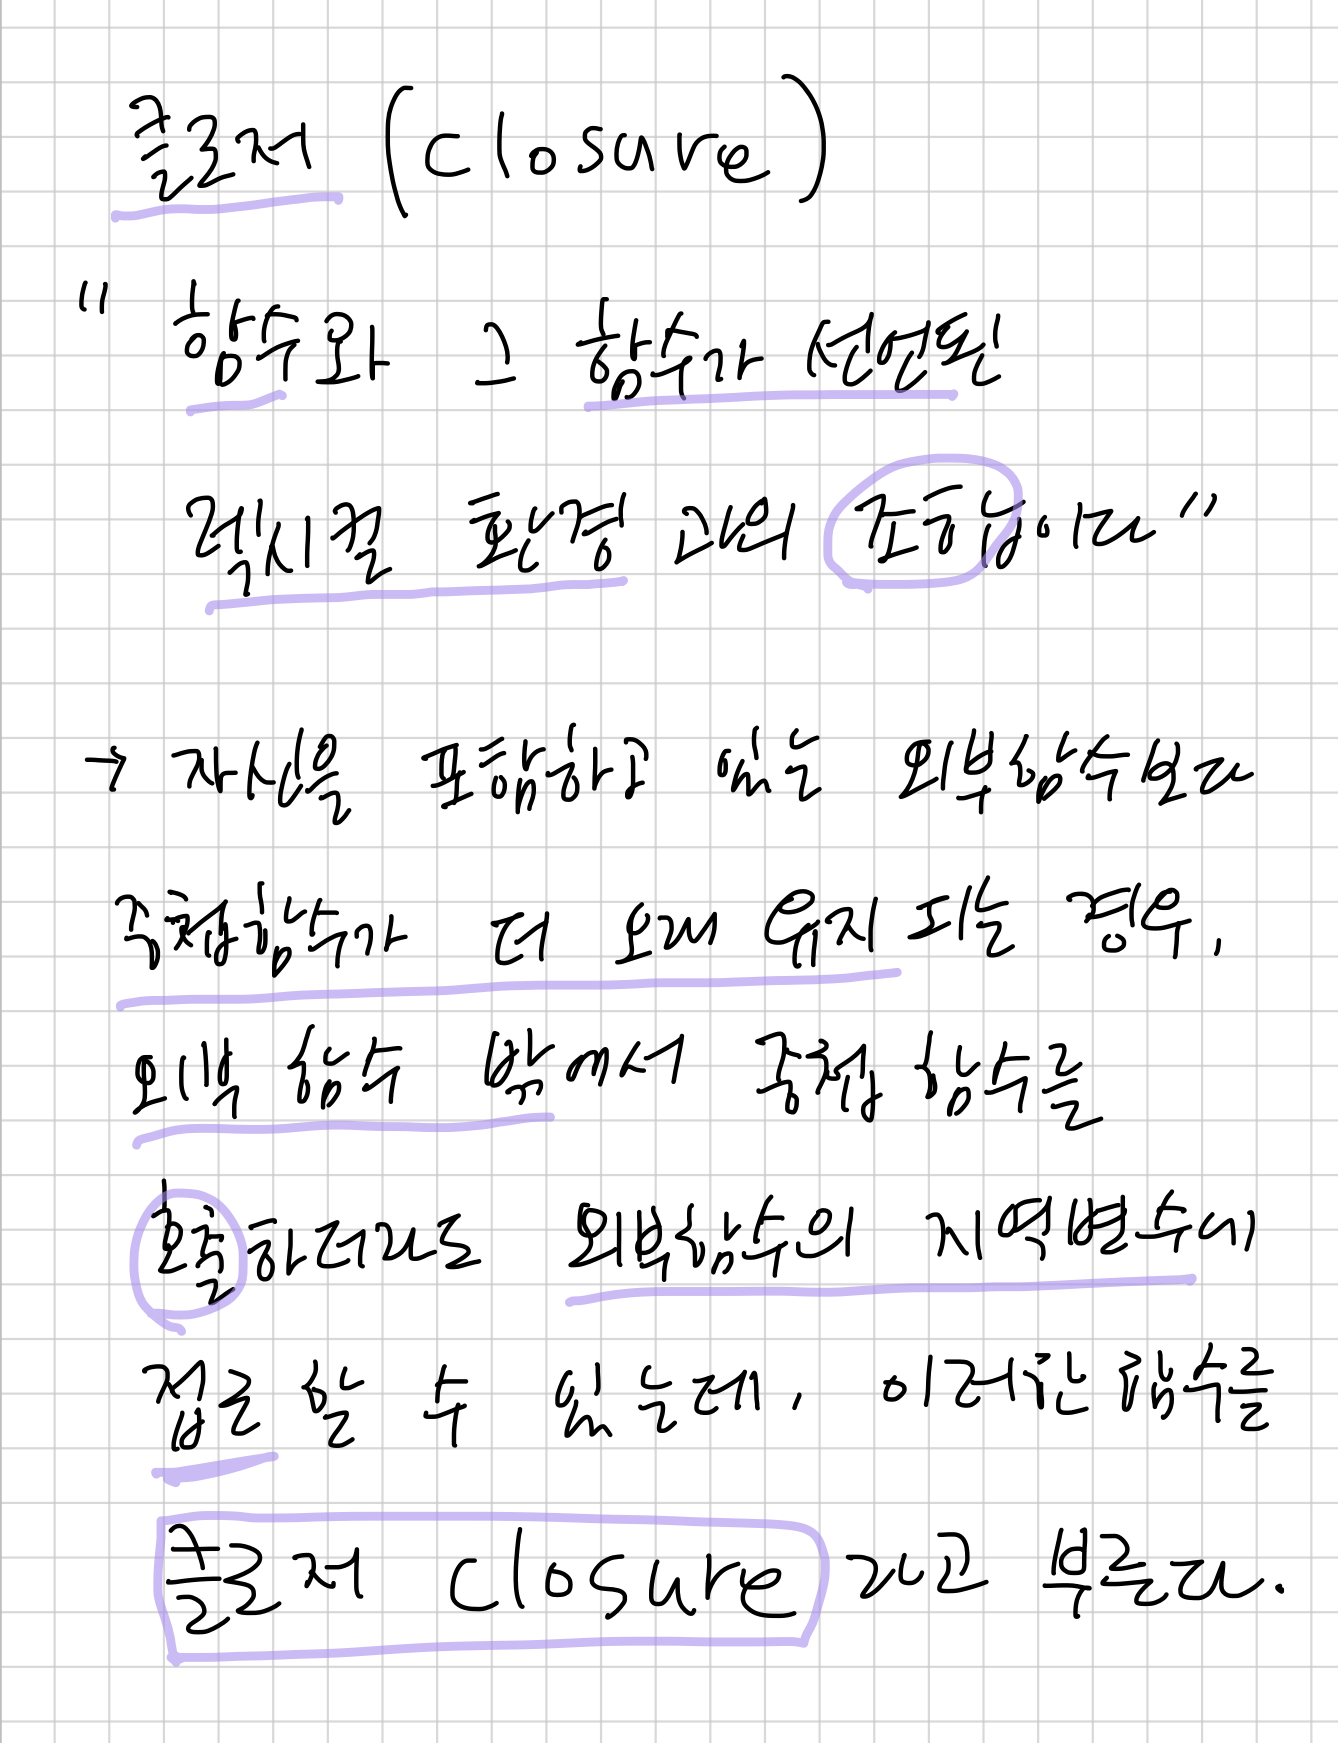 클로저 (closure)
" 함수와 그 함수가 선언된
렉시컬 환경과의 조합이다"
→ 자신을 포함하고 있는 외부함수보다
중첩함수가 더 오래 유지 되는 경우,
외부 함수 밖에서 중첩 함수를
호출하더라도 외부함수의 지역변수에
접근 할 수 있는데, 이러한 함수를
클로저 closure 라고 부른다.